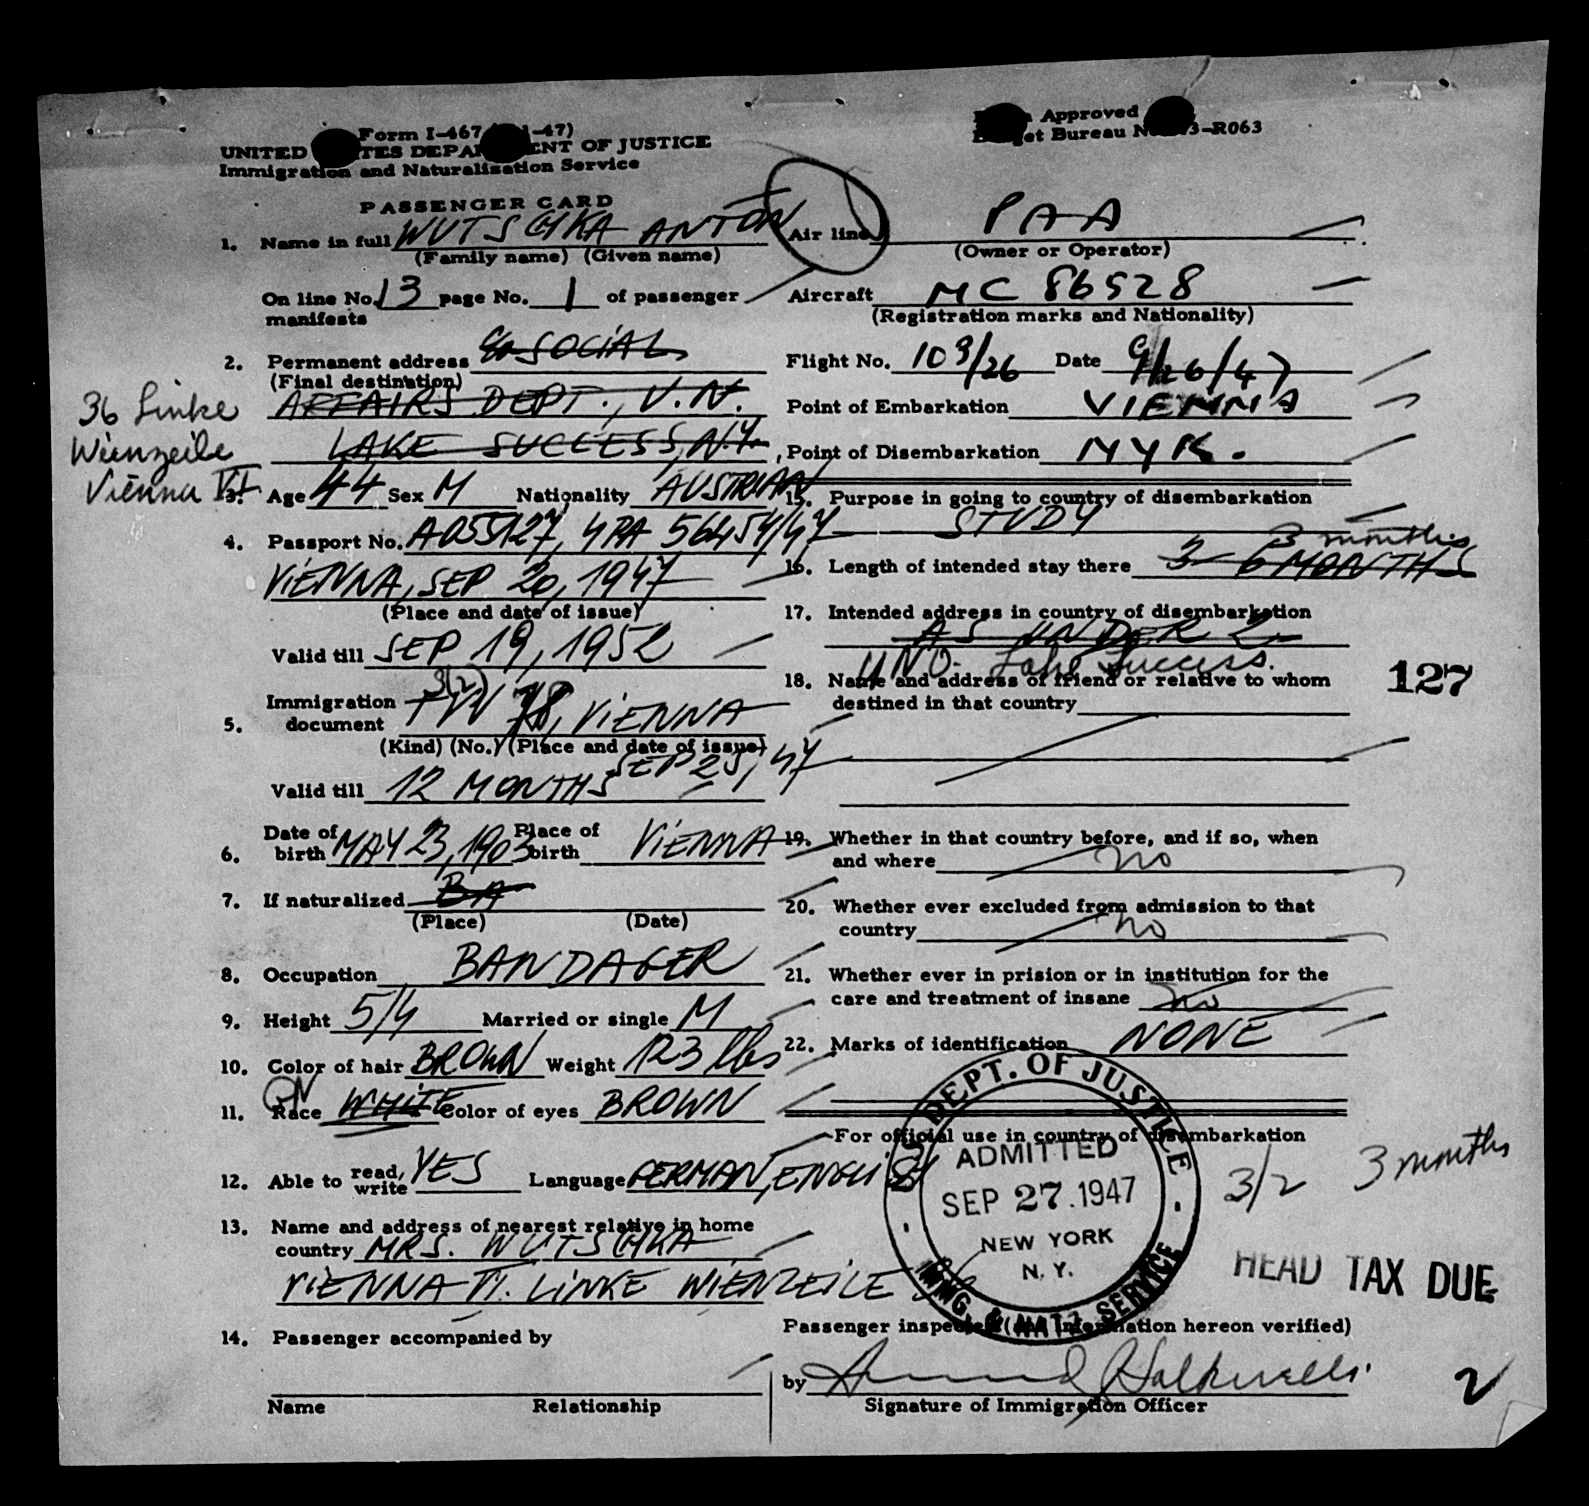 Form I-467 -47)
UNITED TES DEPA ENT OF JUSTICE
Immigration and Naturalization Service
PASSENGER CARD
Approved
et Bureau N 3-R063
1. Name in full WUTSCHKA ANTON
(Family name) (Given name)
On line No. 13 page No. 1 of passenger
manifests
2. Permanent address c/o SOCIAL
(Final destination)
AFFAIRS DEPT., U.N.
LAKE SUCCESS, N.Y.
36 Linke
Wienzeile
Vienna VI
3. Age 44 Sex M Nationality AUSTRIAN
4. Passport No. A055127, 4PA 56454/47
VIENNA, SEP 20, 1947
(Place and date of issue)
Valid till SEP 19, 1952
3(2)
5. Immigration document VIENNA
(Kind) (No.) (Place and date of issue)
SEP 25, 47
Valid till 12 MONTHS
6. Date of birth MAY 23, 1903 Place of birth VIENNA
7. If naturalized BA
(Place) (Date)
8. Occupation BANDAGER
9. Height 5/4 Married or single M
10. Color of hair BROWN Weight 123 lbs
11. Race WHITE Color of eyes BROWN
12. Able to read, write YES Language GERMAN, ENGLISH
13. Name and address of nearest relative in home
country MRS. WUTSCHKA
VIENNA VI. LINKE WIENZEILE 36
14. Passenger accompanied by
Name Relationship
Air line PAA
(Owner or Operator)
Aircraft NC 86528
(Registration marks and Nationality)
Flight No. 109/26 Date 9/26/47
Point of Embarkation VIENNA
Point of Disembarkation NYK.
15. Purpose in going to country of disembarkation
STUDY
3 months
16. Length of intended stay there 3-6 MONTHS
17. Intended address in country of disembarkation
AS UNDER 2
UNO. Lake Success.
18. Name and address of friend or relative to whom
destined in that country
127
19. Whether in that country before, and if so, when
and where no
20. Whether ever excluded from admission to that
country no
21. Whether ever in prision or in institution for the
care and treatment of insane no
22. Marks of identification NONE
For official use in country of disembarkation
U.S. DEPT. OF JUSTICE
ADMITTED
SEP 27.1947
NEW YORK
N.Y.
IMMG. & NATZ. SERVICE
3/2 3 months
HEAD TAX DUE
Passenger inspected (and information hereon verified)
by
Signature of Immigration Officer
2